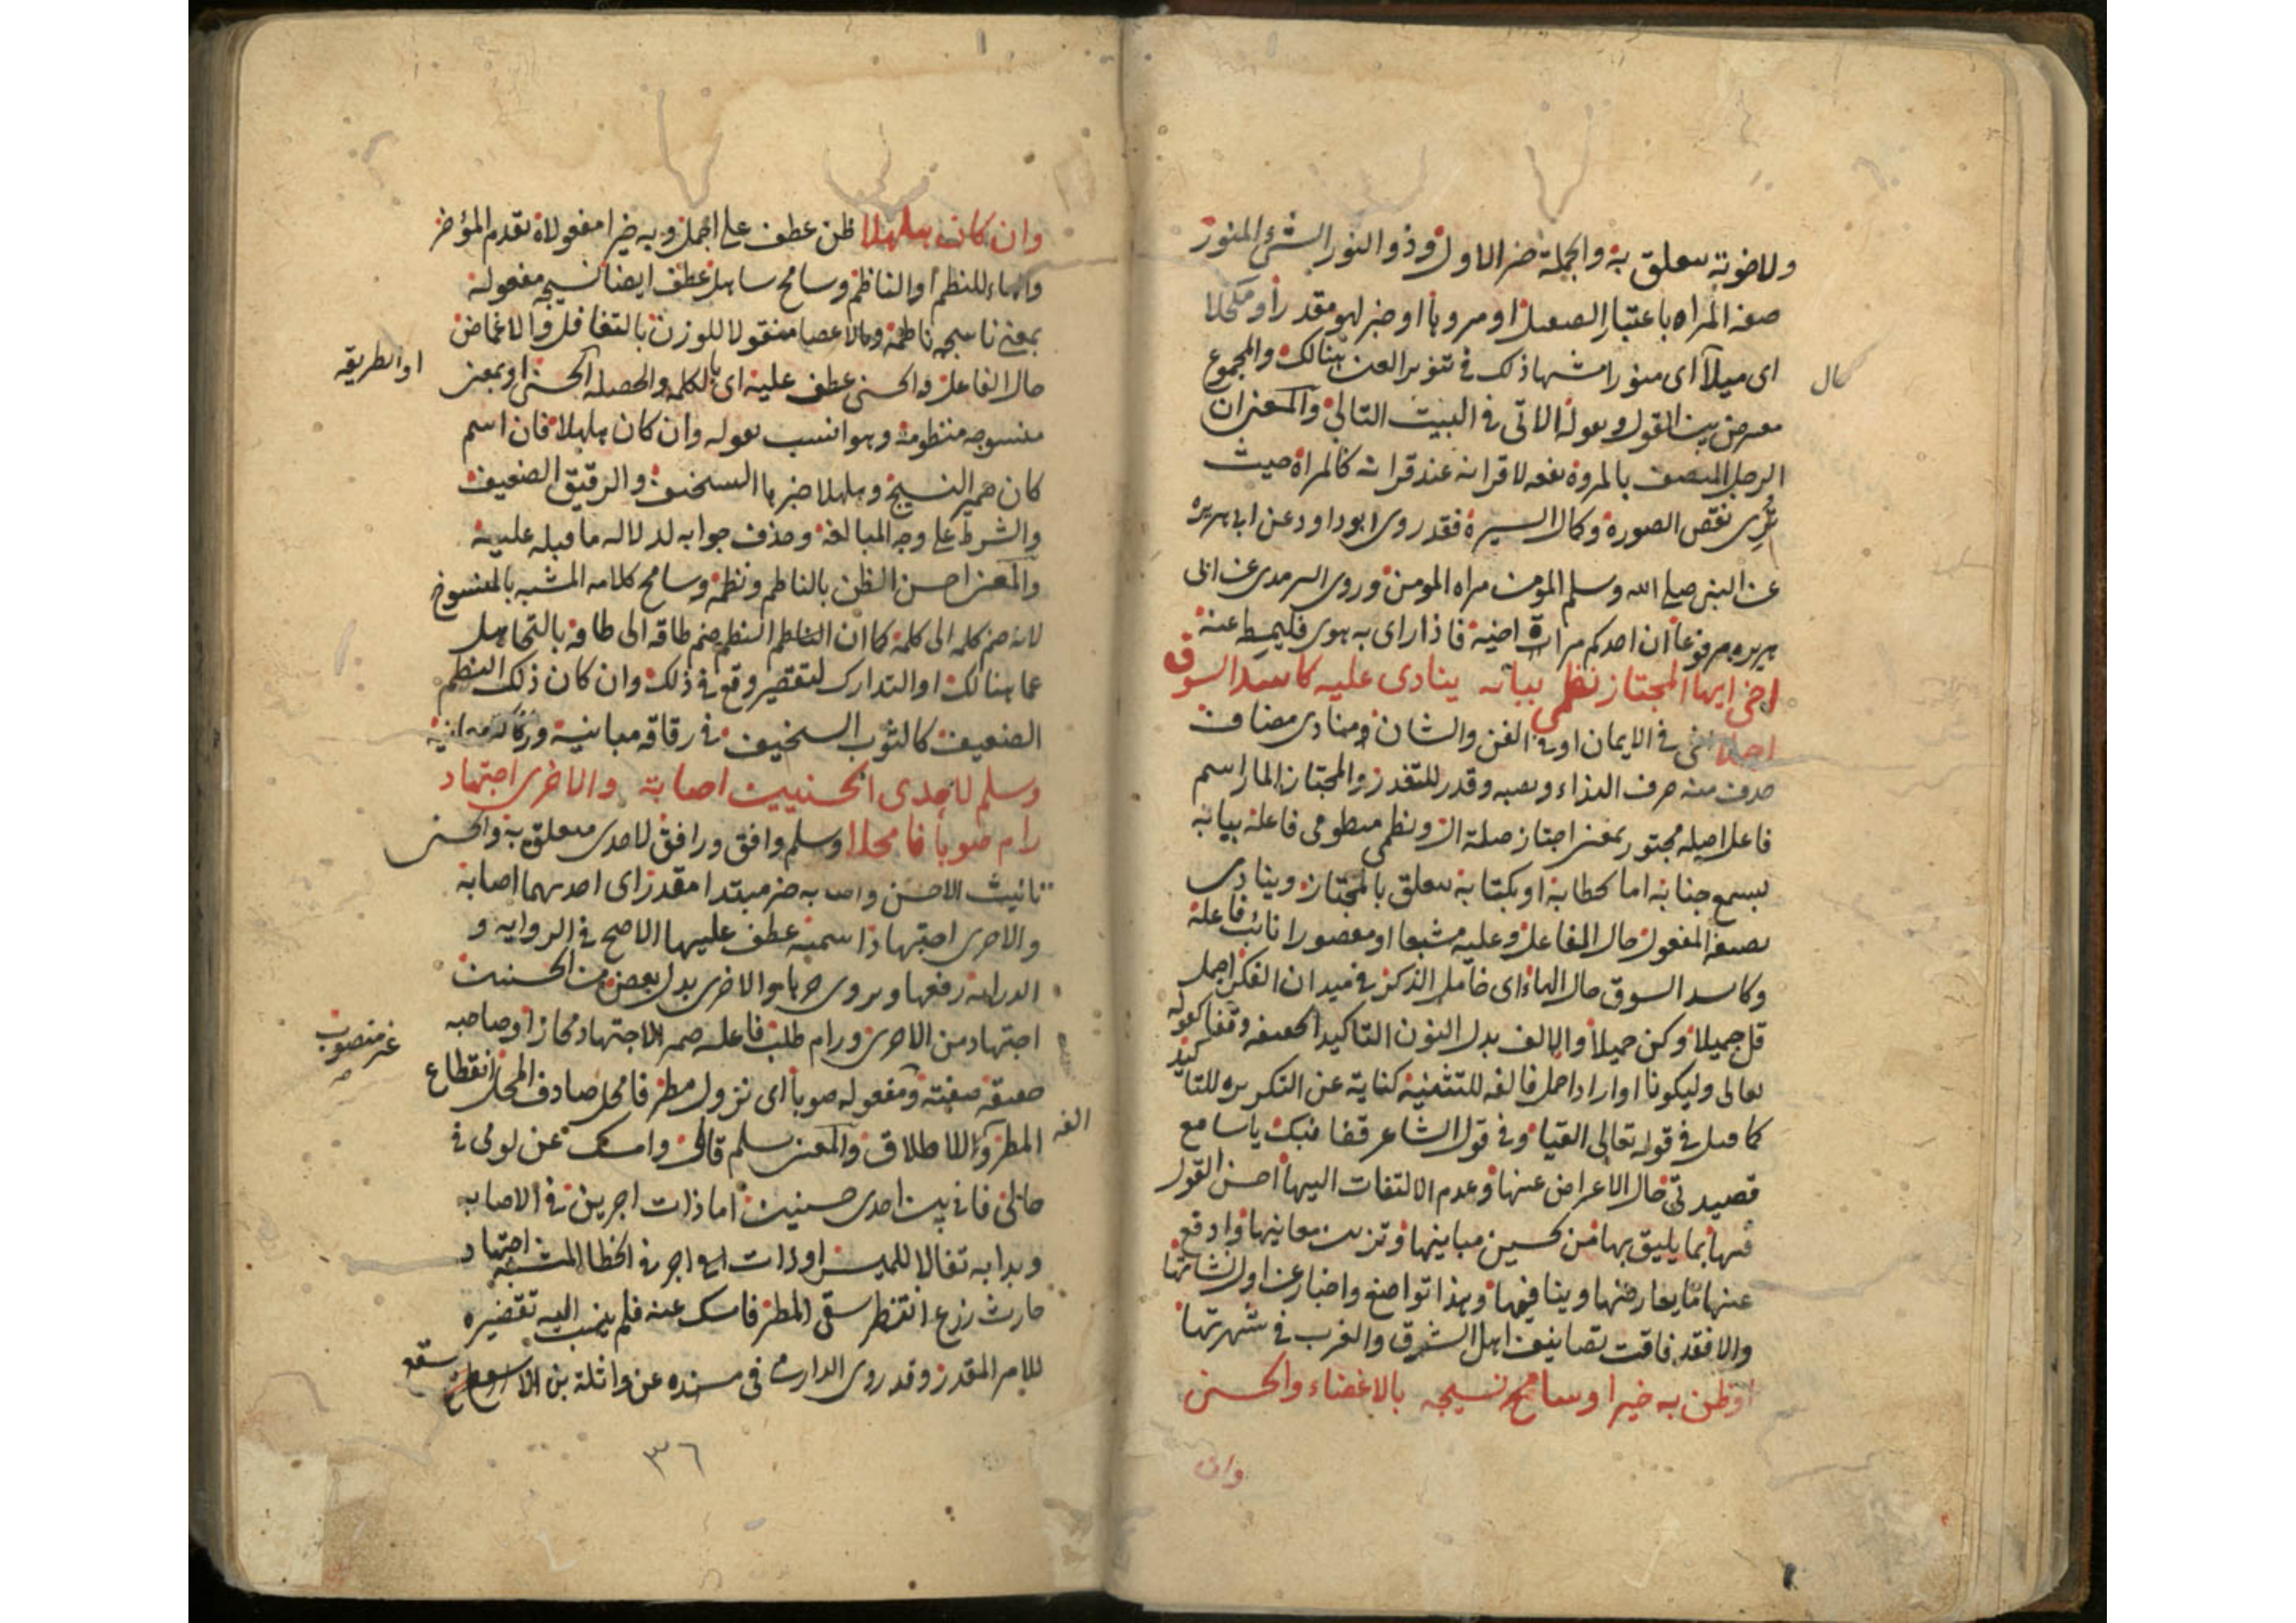 ولاخوته متعلق به والجملة خبر الاول وذو النور الشئ المنور
صفة المراه باعتبار الصقيل او مرويا او خبر لهو مقدرا ومكحلا
اى ميلا اى منورا مشبها ذلك فى تنوير العين هنالك والمجموع
كال
معترض بين القول ومقوله الاتى فى البيت التالى والمعنى ان
الرجل المتصف بالمروة نفعه لاقرانه عند قرانه كالمراة حيث
ترى نقص الصورة وكمال السيرة فقد روى ابو داود عن ابى هريرة
عن النبى صلى الله وسلم المؤمن مراه المؤمن وروى الترمذى عن ابى
هريره مرفوعا ان احدكم مراة اخيه فاذا راى به هوى فليمطه عنه
اخى ايها المجتاز نظمى ببابه ينادى عليه كاسد السوق
اجملا اخى فى الايمان او فى الفن والشان ومنادى مضاف
حذف منه حرف النداء ونصبه وقدر للتعذر والمجتاز المار اسم
فاعل اصله مجتوز بمعنى اجتاز صلة ال ونظمى منظومى فاعله ببابه
بسمع جنابه اما بخطابه او بكتابه متعلق بالمجتاز وينادى
بصيغة المفعول حال الفاعل وعليه مشبعا او مقصورا نائب فاعله
وكاسد السوق حال الهاء اى خامل الذكر فى ميدان الفكر اجمل
قل جميلا وكن جميلا والالف بدل النون التاكيد الخفيفه وقفا كقوله
تعالى وليكونا او اراد اجمل فالفه للتثنيه كناية عن التكريره للتاكيد
كما قيل فى قوله تعالى القيا وفى قول الشاعر قفا نبك يا سامع
قصيدتى حال الاعراض عنها وعدم الالتفات اليها احسن القول
فيها بما يليق بها من تحسين مبانيها وتزيين معانيها وادفع
عنها ما يعارضها وينافيها وهذا تواضع واخبار عن اول نشاتها
والا فقد فاقت تصانيف اهل الشرق والغرب فى شهرتها
وظن به خيرا وسامح نسيجه بالاغضاء والحسنى
وان
وان كان هلهلا ظن عطف على اجمل وبه خيرا مفعولاه تقدم المؤخر
والهاء للنظم او الناظم وسامح ساهل عطف ايضا نسيجه مفعوله
بمعنى ناسجه ناظمه وبالاغضا منقولا للوزن بالتغافل والاغماض
حال الفاعل والحسنى عطف عليه اى بالكلمه والخصله الحسنى او بمعنى
او الطريقه
منسوجه منظومه وهو انسب بقوله وان كان هلهلا فان اسم
كان ضمير النسيج وهلهلا خبرها السخيف والرقيق الضعيف
والشرط على وجه المبالغة وحذف جوابه لدلاله ما قبله عليه
والمعنى احسن الظن بالناظم ونظمه وسامح كلامه المشبه بالمنسوج
لانه ضم كلمه الى كلمة كما ان الناظم النظم ضم طاقه الى طاقه بالتجاهل
عما هنالك او التدارك لتقصير وقع فى ذلك وان كان ذلك النظم
الضعيف كالثوب السخيف فى رقاقة مبانيه وركاكة معانيه
وسلم لاحدى الحسنيين اصابة والاخرى اجتهاد
رام صوبا فامحلا وسلم وافق ورافق لاحدى متعلق به والحسنى
تانيث الاحسن واصابه خبر مبتدا مقدر اى احديهما اصابة
والاخرى اجتهاد اسمية عطف عليها الاصح فى الروايه و
الدرايه رفعها ويروى جرها والاخرى بدل بعض من الحسنيين
اجتهاد من الاخرى ورام طلب فاعله ضمير الاجتهاد مجازا وصاحبه
غير منصوب
حقيقة صفته ومفعوله صوبا اى نزول مطر فامحل صادف المحل انقطاع
المطر والاطلاق والمعنى سلم قالى وامسك عن لومى فى
الفه
حالى فانى بين احدى حسنيين اما ذات اجرين فى الاصابه
وبدا به تفالا للميسر او ذات اجر فى الخطا المشبه اجتهاد
حارث زرع انتظر سقى المطر فامسك عنه فلم ينسب اليه تقصيره
للامر المقدر وقد روى الدارمى فى مسنده عن واثلة بن الاسقع
سقع
٣٦